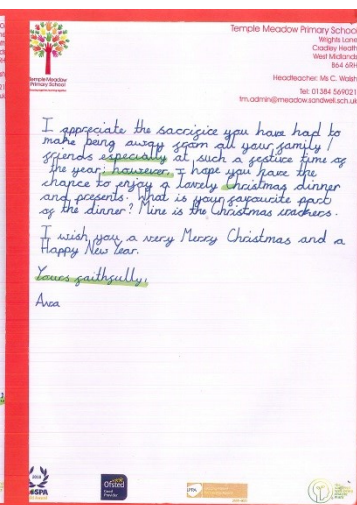 Temple Meadow Primary School
Wrights Lane
Cradley Heath
West Midlands
B64 6RH
Headteacher: Ms C. Walsh
Tel: 01384 569021
tm.admin@meadow.sandwell.sch.uk
Temple Meadow
Primary School
I appreciate the sacrifice you have had to
make being away from all your family /
friends especially at such a festive time of
the year; however, I hope you have the
chance to enjoy a lovely Christmas dinner
and presents. What is your favourite part
of the dinner? Mine is the Christmas crackers.
I wish you a very Merry Christmas and a
Happy New Year.
Yours faithfully,
Ava
Ofsted